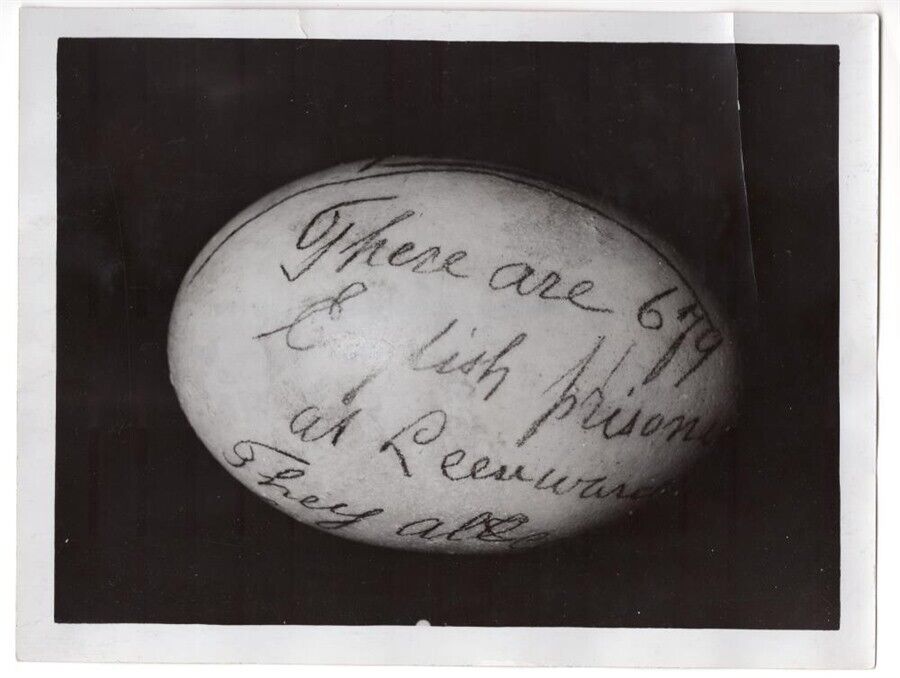 There are 679
English prisone
at Leeuward
They